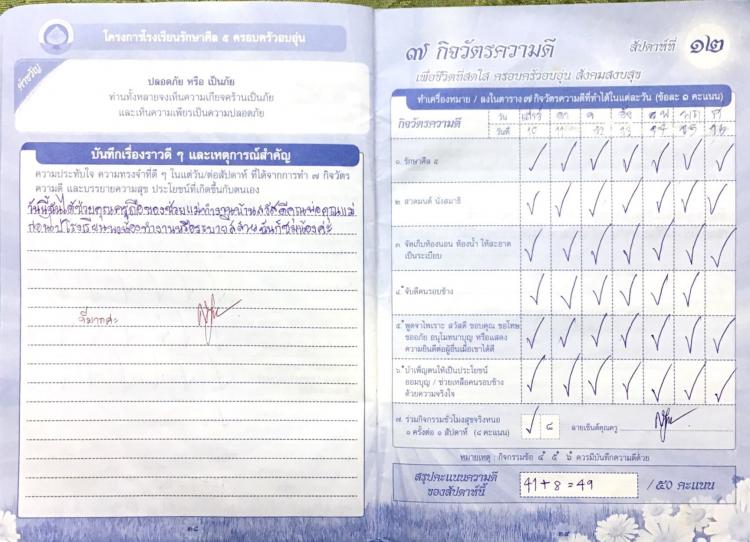 โครงการโรงเรียนรักษาศีล ๕ ครอบครัวอบอุ่น
คำขวัญ
ปลอดภัย หรือ เป็นภัย
ท่านทั้งหลายจงเห็นความเกียจคร้านเป็นภัย
และเห็นความเพียรเป็นความปลอดภัย
บันทึกเรื่องราวดี ๆ และเหตุการณ์สำคัญ
ความประทับใจ ความทรงจำที่ดี ๆ ในแต่ละวัน/ต่อสัปดาห์ ที่ได้จากการทำ ๗ กิจวัตร
ความดี และบรรยายความสุข ประโยชน์ที่เกิดขึ้นกับตนเอง
วันนี้ฉันได้ช่วยคุณครูถือของช่วยแม่ทำงานบ้านสวัสดีคุณพ่อคุณแม่
ก่อนไปโรงเรียน
ดีมากค่ะ
๓๘
๗ กิจวัตรความดี
สัปดาห์ที่ ๑๒
เพื่อชีวิตที่สดใส ครอบครัวอบอุ่น สังคมสงบสุข
ทำเครื่องหมาย / ลงในตาราง ๗ กิจวัตรความดีที่ทำได้ในแต่ละวัน (ข้อละ ๑ คะแนน)
กิจวัตรความดี
วัน เสาร์ อา จ อัง พ พฤ ศ
วันที่ 10 11 12 13 14 15 16
๑. รักษาศีล ๕
๒. สวดมนต์ นั่งสมาธิ
๓. จัดเก็บห้องนอน ห้องน้ำ ให้สะอาด
เป็นระเบียบ
๔. จับดีคนรอบข้าง
๕. พูดจาไพเราะ สวัสดี ขอบคุณ ขอโทษ
ขออภัย อนุโมทนาบุญ หรือแสดง
ความยินดีต่อผู้อื่นเมื่อเขาได้ดี
๖. บำเพ็ญตนให้เป็นประโยชน์
ออมบุญ / ช่วยเหลือคนรอบข้าง
ด้วยความจริงใจ
๗. ร่วมกิจกรรมชั่วโมงสุขจริงหนอ
๑ ครั้งต่อ ๑ สัปดาห์ (๘ คะแนน)
๘
ลายเซ็นต์คุณครู
หมายเหตุ : กิจกรรมข้อ ๔ ๕ ๖ ควรมีบันทึกความดีด้วย
สรุปคะแนนความดี
ของสัปดาห์นี้
41+8=49
/ ๕๐ คะแนน
๓๙